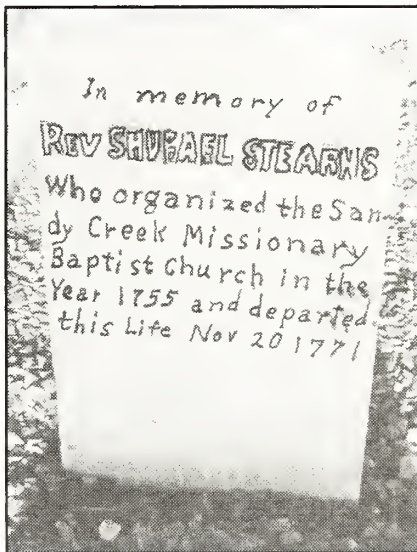 In memory of
REV SHUBAEL STEARNS
Who organized the San-
dy Creek Missionary
Baptist Church in the
Year 1755 and departed
this Life Nov 20 1771